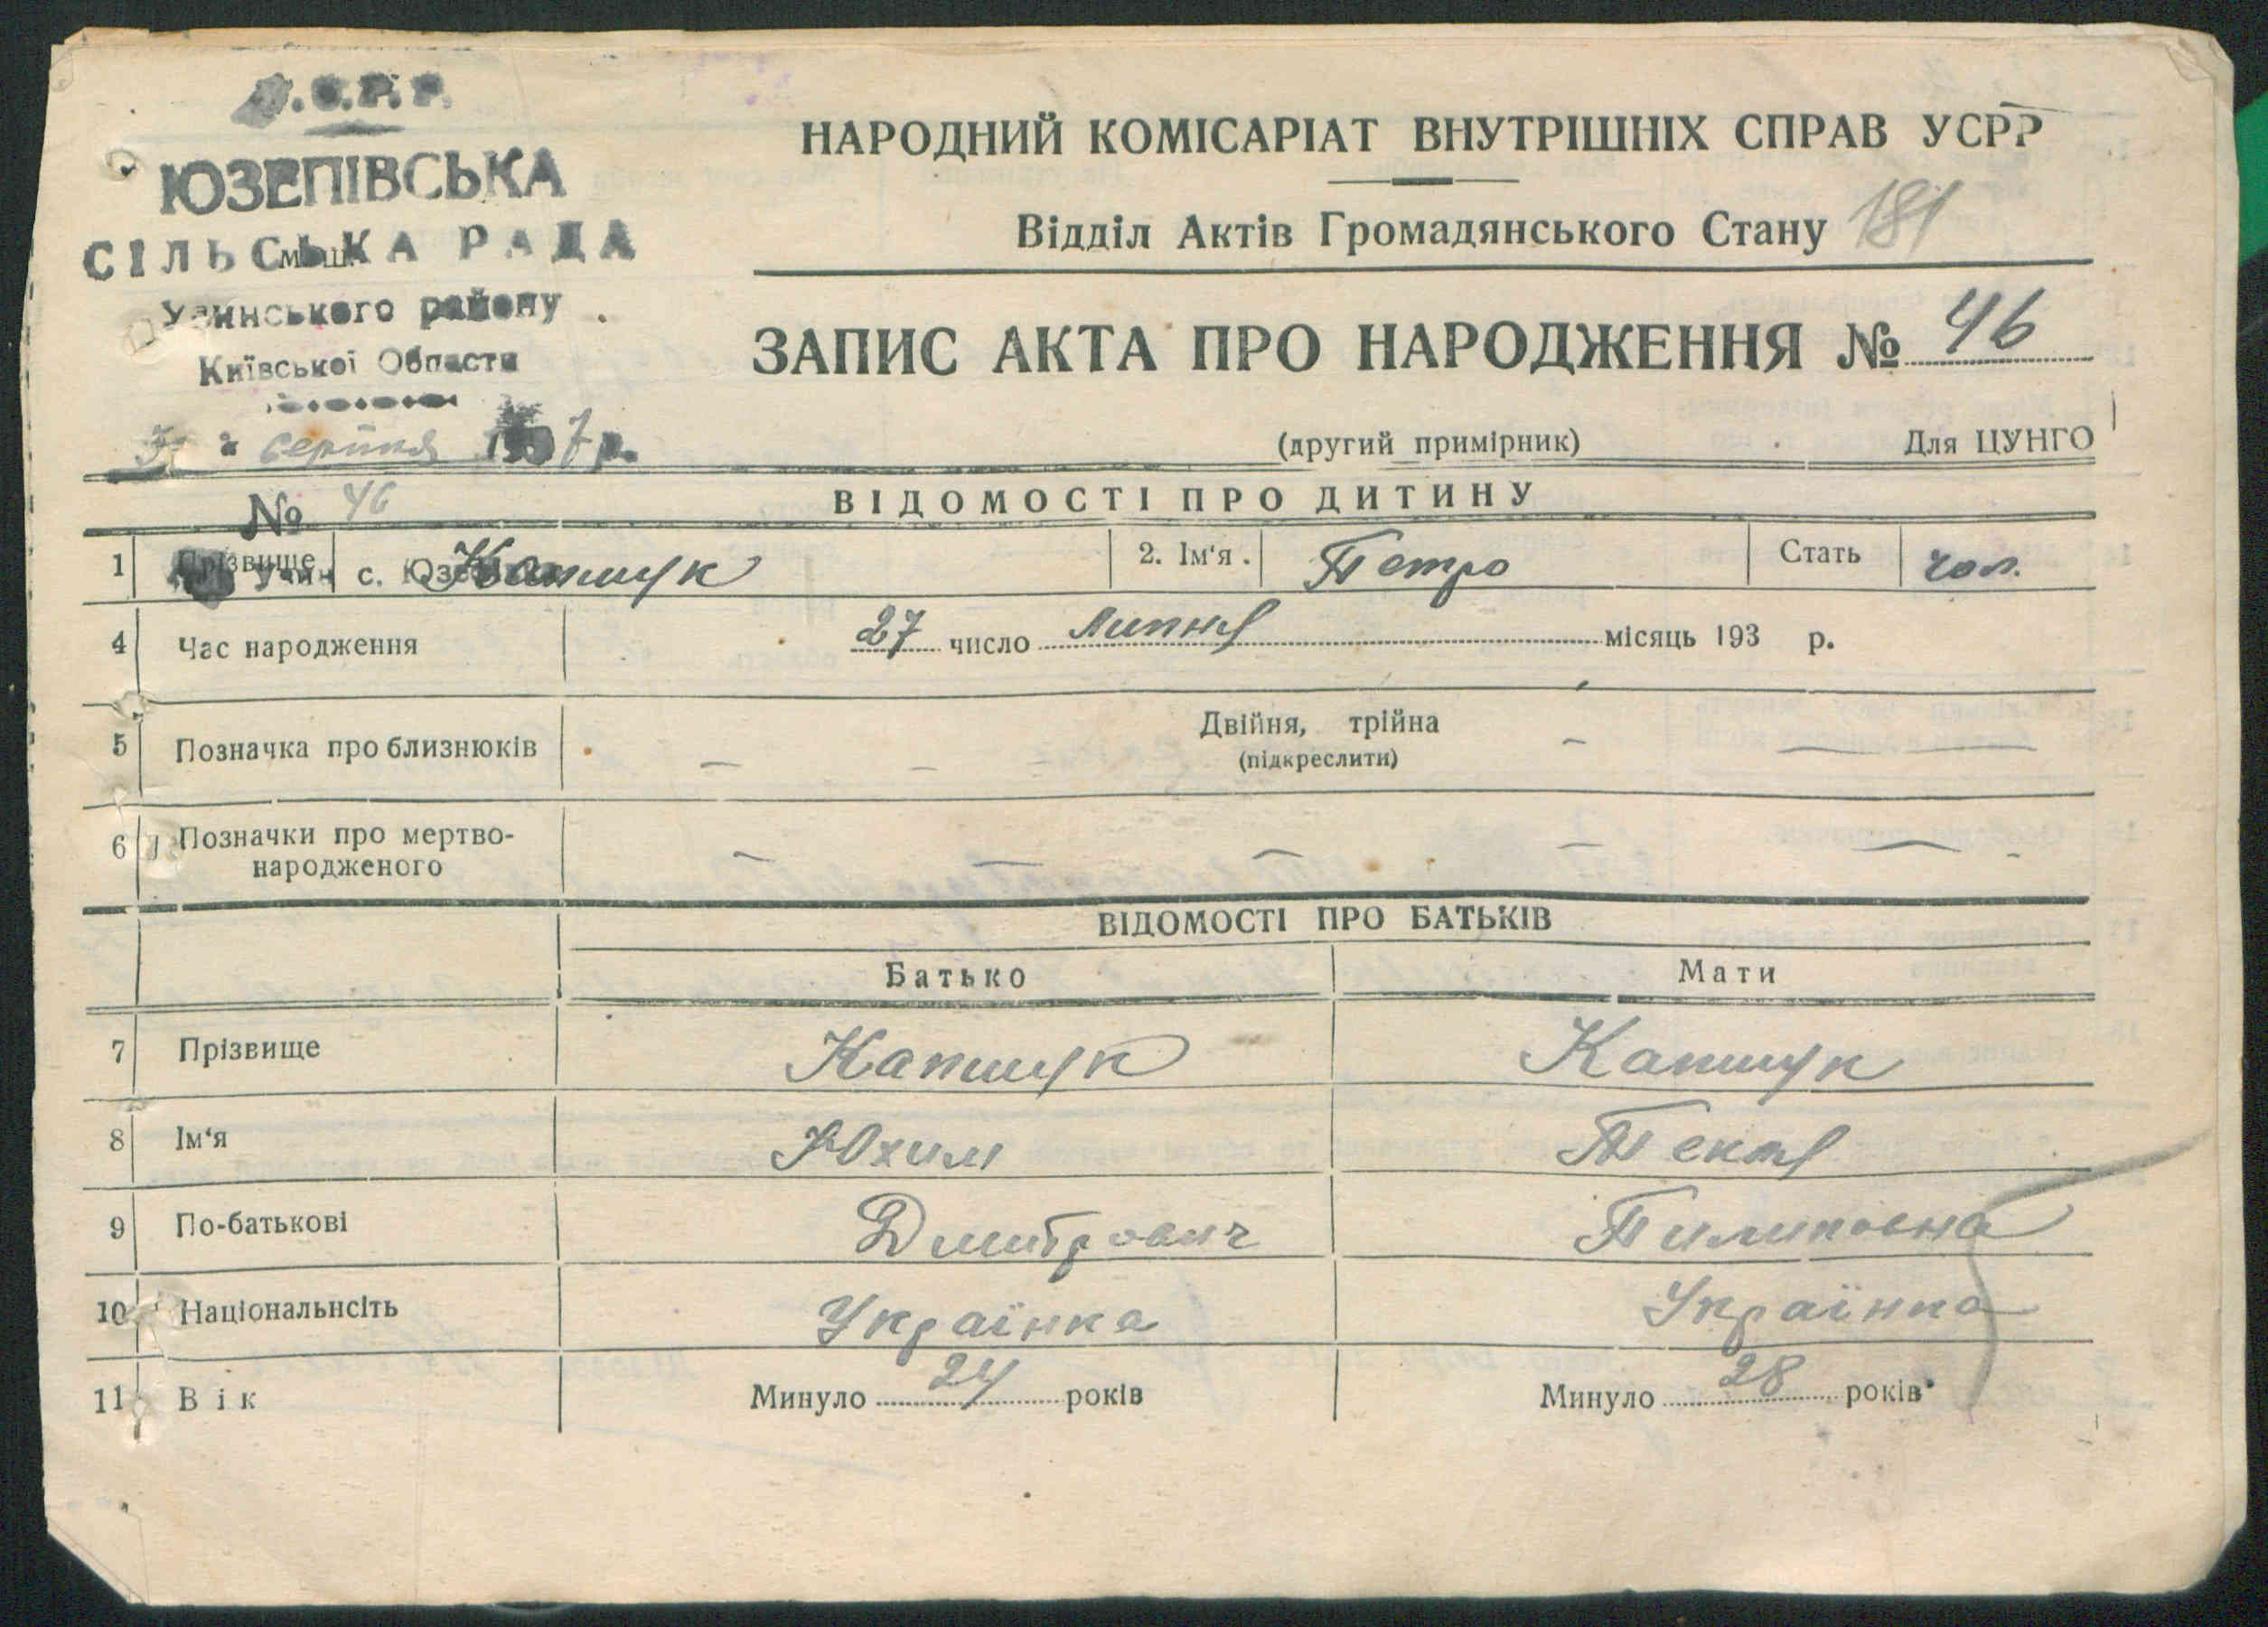 У.С.Р.Р.
ЮЗЕПІВСЬКА
СІЛЬСЬКА РАДА
Узинського району
Київської Области
серпня 1937 р.
№ 46
с.
НАРОДНИЙ КОМІСАРІАТ ВНУТРІШНІХ СПРАВ УСРР
Відділ Актів Громадянського Стану 181
ЗАПИС АКТА ПРО НАРОДЖЕННЯ № 46
(другий примірник) Для ЦУНГО
ВІДОМОСТІ ПРО ДИТИНУ
1 Прізвище Капшук 2. Ім'я. Петро Стать чол.
4 Час народження 27 число Липня місяць 193 р.
5 Позначка про близнюків Двійня, трійна
(підкреслити)
6 Позначки про мертво-
народженого
ВІДОМОСТІ ПРО БАТЬКІВ
Батько Мати
7 Прізвище Капшук Капшук
8 Ім'я Юхим Текля
9 По-батькові Дмитрович Пилиповна
10 Національнсіть Українка Українка
11 Вік Минуло 24 років Минуло 28 років